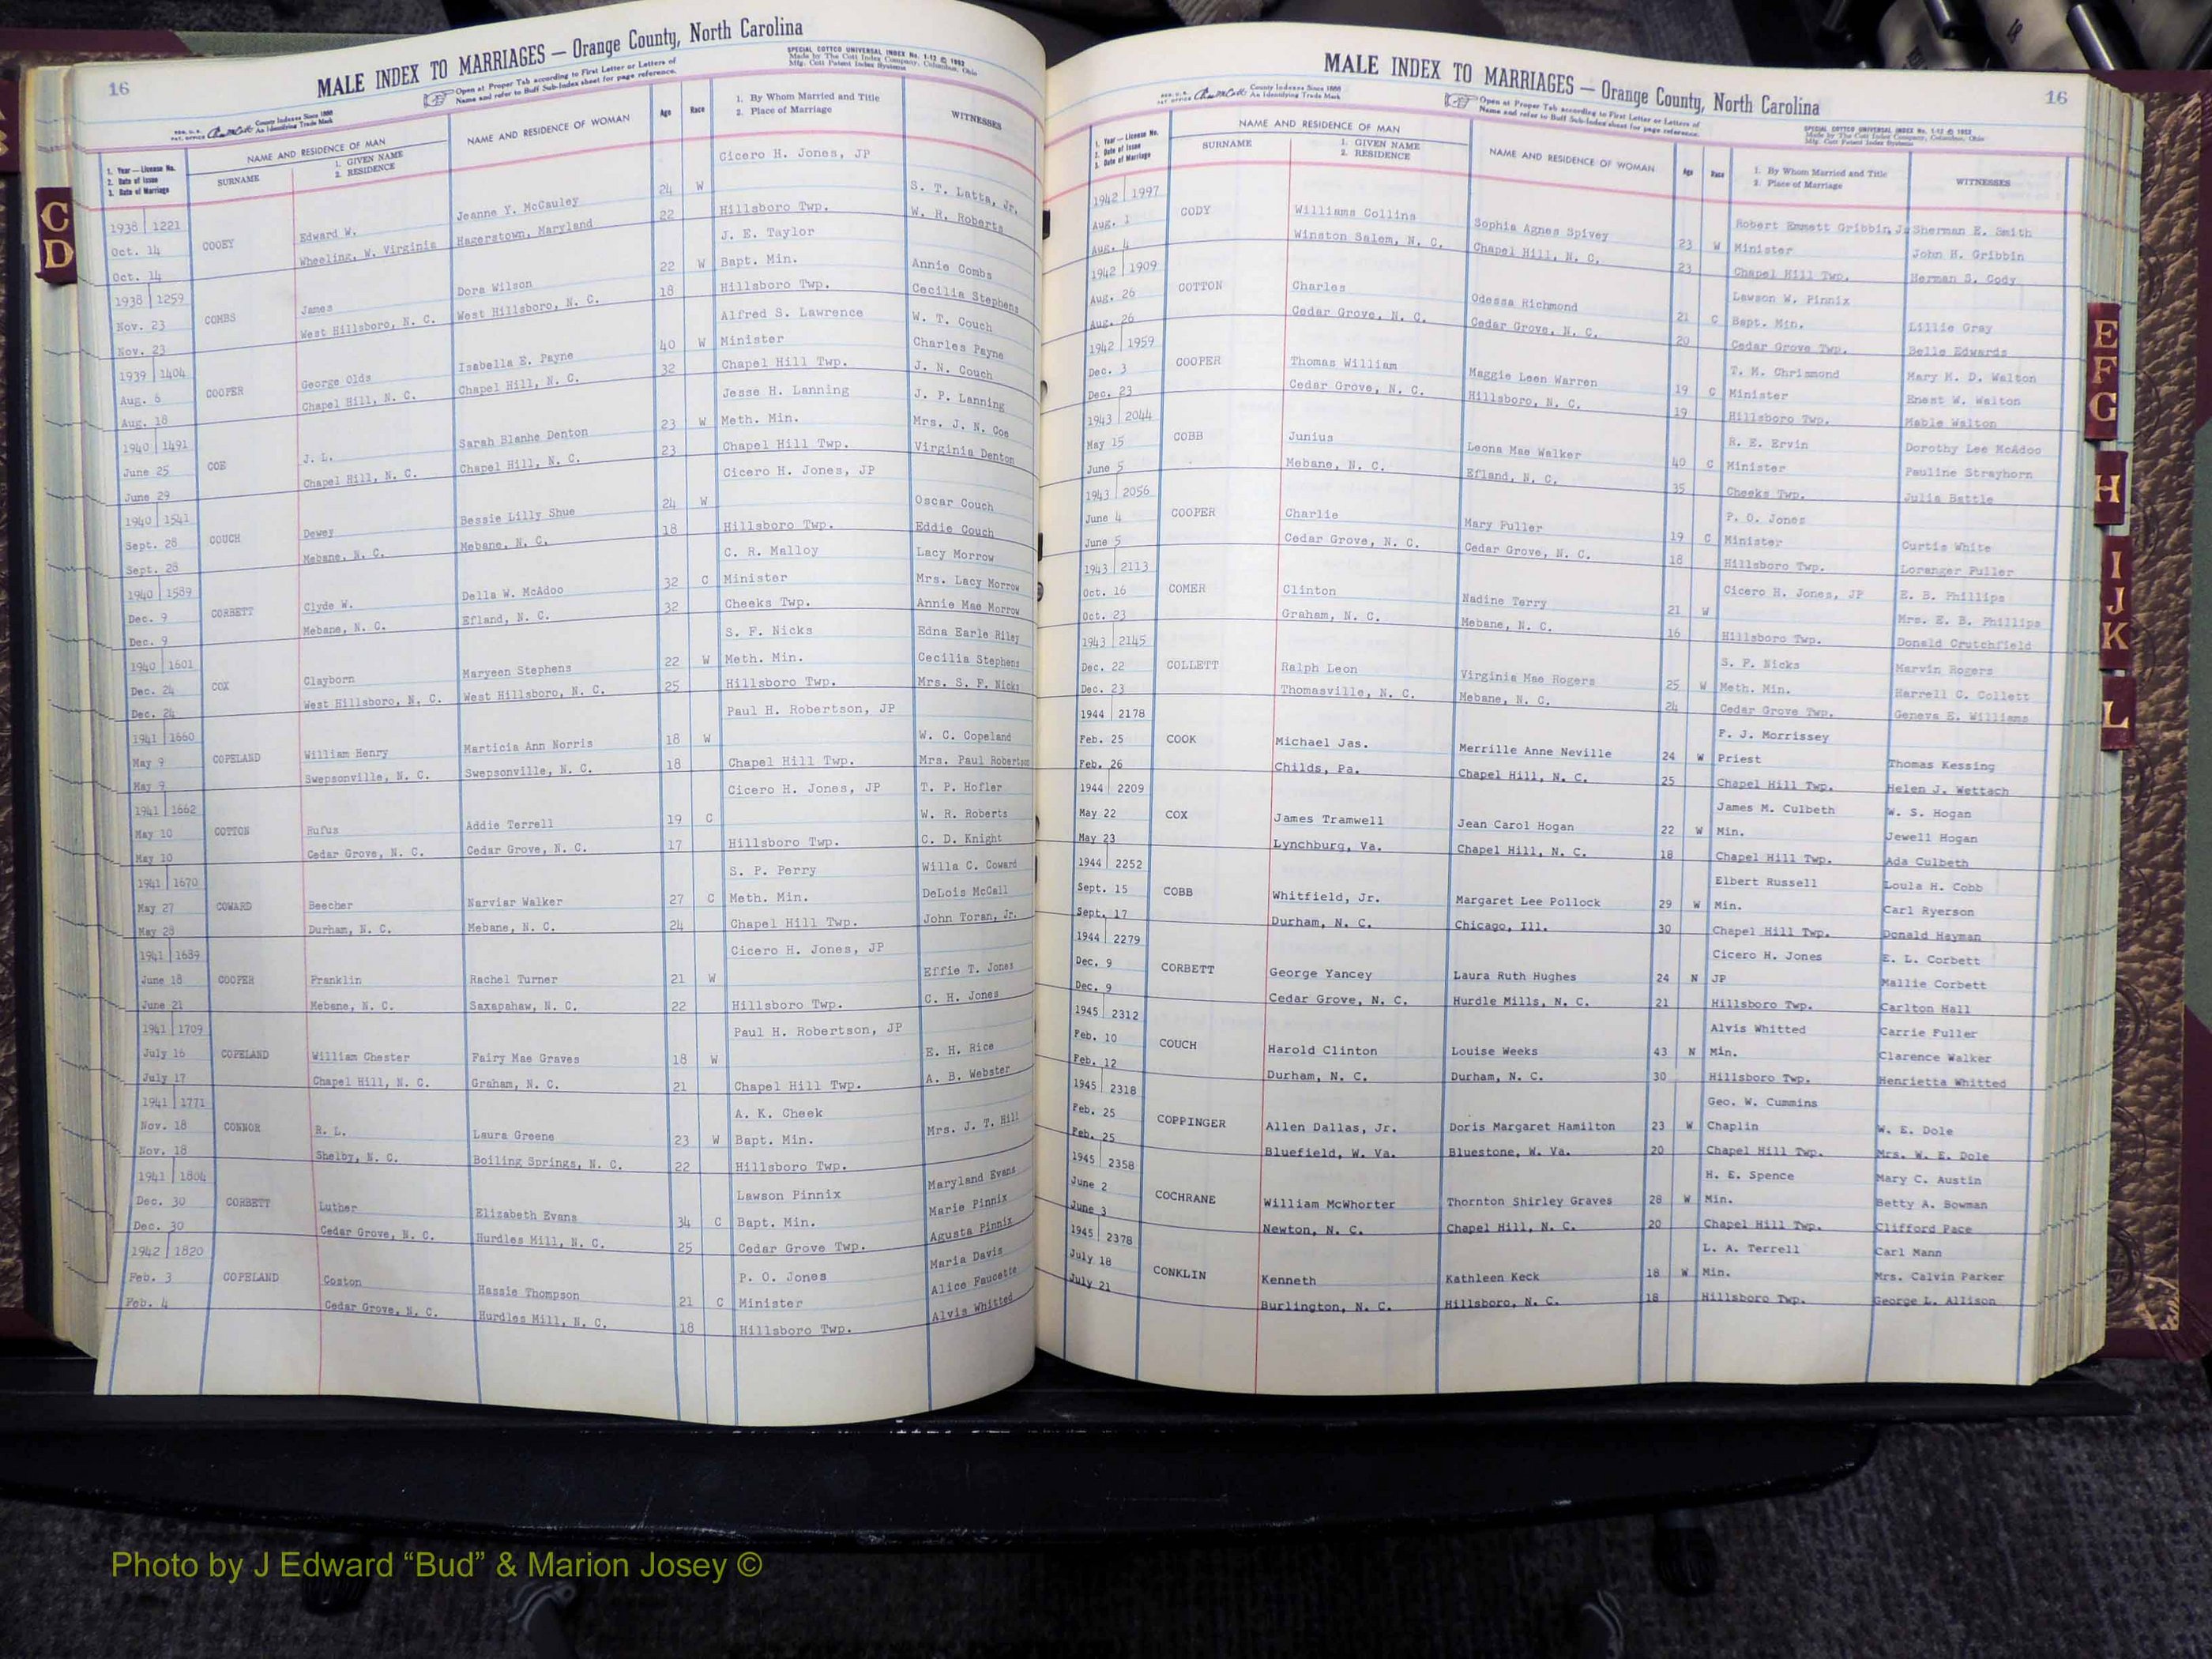 16
MALE INDEX TO MARRIAGES — Orange County, North Carolina
Open at Proper Tab according to First Letter or Letters of
Name and refer to Buff Sub-Index sheet for page reference.
SPECIAL COTTCO UNIVERSAL INDEX No. 1-12 © 1952
Made by The Cott Index Company, Columbus, Ohio
Mfg. Cott Patent Index Systems
County Indexes Since 1888
An Identifying Trade Mark
1. Year — License No.
2. Date of Issue
3. Date of Marriage
NAME AND RESIDENCE OF MAN
SURNAME
1. GIVEN NAME
2. RESIDENCE
NAME AND RESIDENCE OF WOMAN
Age
Race
1. By Whom Married and Title
2. Place of Marriage
WITNESSES
Cicero H. Jones, JP
1938 1221 Edward W. Jeanne Y. McCauley 24 W S. T. Latta, Jr.
Oct. 14 COOEY Wheeling, W. Virginia Hagerstown, Maryland 22 Hillsboro Twp. W. R. Roberts
Oct. 14 J. E. Taylor
1938 1259 James Dora Wilson 22 W Bapt. Min. Annie Combs
Nov. 23 COMBS West Hillsboro, N. C. West Hillsboro, N. C. 18 Hillsboro Twp. Cecilia Stephens
Nov. 23 Alfred S. Lawrence W. T. Couch
1939 1404 George Olds Isabella E. Payne 40 W Minister Charles Payne
Aug. 8 COOPER Chapel Hill, N. C. Chapel Hill, N. C. 32 Chapel Hill Twp. J. N. Couch
Aug. 18 Jesse H. Lanning J. P. Lanning
1940 1491 J. L. Sarah Blanhe Denton 23 W Meth. Min. Mrs. J. N. Coe
June 25 COE Chapel Hill, N. C. Chapel Hill, N. C. 23 Chapel Hill Twp. Virginia Denton
June 29 Cicero H. Jones, JP
1940 1541 Dewey Bessie Lilly Shue 24 W Oscar Couch
Sept. 28 COUCH Mebane, N. C. Mebane, N. C. 18 Hillsboro Twp. Eddie Couch
Sept. 28 C. R. Malloy Lacy Morrow
1940 1589 Clyde W. Della W. McAdoo 32 C Minister Mrs. Lacy Morrow
Dec. 9 CORBETT Mebane, N. C. Efland, N. C. 32 Cheeks Twp. Annie Mae Morrow
Dec. 9 S. F. Nicks Edna Earle Riley
1940 1601 Clayborn Maryeen Stephens 22 W Meth. Min. Cecilia Stephens
Dec. 24 COX West Hillsboro, N. C. West Hillsboro, N. C. 25 Hillsboro Twp. Mrs. S. F. Nicks
Dec. 24 Paul H. Robertson, JP
1941 1660 William Henry Marticia Ann Norris 18 W W. C. Copeland
May 9 COPELAND Swepsonville, N. C. Swepsonville, N. C. 18 Chapel Hill Twp. Mrs. Paul Robertson
May 9 Cicero H. Jones, JP T. P. Hofler
1941 1662 Rufus Addie Terrell 19 C W. R. Roberts
May 10 COTTON Cedar Grove, N. C. Cedar Grove, N. C. 17 Hillsboro Twp. C. D. Knight
May 10 S. P. Perry Willa C. Coward
1941 1670 Beecher Narviar Walker 27 C Meth. Min. DeLois McCall
May 27 COWARD Durham, N. C. Mebane, N. C. 24 Chapel Hill Twp. John Toran, Jr.
May 28 Cicero H. Jones, JP
1941 1689 Franklin Rachel Turner 21 W Effie T. Jones
June 18 COOPER Mebane, N. C. Saxapahaw, N. C. 22 Hillsboro Twp. C. H. Jones
June 21 Paul H. Robertson, JP
1941 1709 William Chester Fairy Mae Graves 18 W E. H. Rice
July 16 COPELAND Chapel Hill, N. C. Graham, N. C. 21 Chapel Hill Twp. A. B. Webster
July 17 A. K. Cheek
1941 1771 R. L. Laura Greene 23 W Bapt. Min. Mrs. J. T. Hill
Nov. 18 CONNOR Shelby, N. C. Boiling Springs, N. C. 22 Hillsboro Twp.
Nov. 18 Lawson Pinnix Maryland Evans
1941 1804 Luther Elizabeth Evans 34 C Bapt. Min. Marie Pinnix
Dec. 30 CORBETT Cedar Grove, N. C. Hurdles Mill, N. C. 25 Cedar Grove Twp. Agusta Pinnix
Dec. 30 P. O. Jones Maria Davis
1942 1820 Coston Hassie Thompson 21 C Minister Alice Faucette
Feb. 3 COPELAND Cedar Grove, N. C. Hurdles Mill, N. C. 18 Hillsboro Twp. Alvis Whitted
Feb. 4
MALE INDEX TO MARRIAGES — Orange County, North Carolina
16
County Indexes Since 1888
An Identifying Trade Mark
Open at Proper Tab according to First Letter or Letters of
Name and refer to Buff Sub-Index sheet for page reference.
SPECIAL COTTCO UNIVERSAL INDEX No. 1-12 © 1952
Made by The Cott Index Company, Columbus, Ohio
Mfg. Cott Patent Index Systems
1. Year — License No.
2. Date of Issue
3. Date of Marriage
NAME AND RESIDENCE OF MAN
SURNAME
1. GIVEN NAME
2. RESIDENCE
NAME AND RESIDENCE OF WOMAN
Age
Race
1. By Whom Married and Title
2. Place of Marriage
WITNESSES
1942 1997 Robert Emmett Gribbin, J Sherman E. Smith
Aug. 1 CODY Williams Collins Sophia Agnes Spivey 23 W Minister John H. Gribbin
Aug. 4 Winston Salem, N. C. Chapel Hill, N. C. 23 Chapel Hill Twp. Herman S. Cody
1942 1909 Lawson W. Pinnix
Aug. 26 COTTON Charles Odessa Richmond 21 C Bapt. Min. Lillie Gray
Aug. 26 Cedar Grove, N. C. Cedar Grove, N. C. 20 Cedar Grove Twp. Belle Edwards
1942 1959 T. M. Chrismond Mary M. D. Walton
Dec. 3 COOPER Thomas William Maggie Leen Warren 19 C Minister Enest W. Walton
Dec. 23 Cedar Grove, N. C. Hillsboro, N. C. 19 Hillsboro Twp. Mable Walton
1943 2044 R. E. Ervin Dorothy Lee McAdoo
May 15 COBB Junius Leona Mae Walker 40 C Minister Pauline Strayhorn
June 5 Mebane, N. C. Efland, N. C. 35 Cheeks Twp. Julia Battle
1943 2056 P. O. Jones
June 4 COOPER Charlie Mary Fuller 19 C Minister Curtis White
June 5 Cedar Grove, N. C. Cedar Grove, N. C. 18 Hillsboro Twp. Loranger Fuller
1943 2113 Cicero H. Jones, JP E. B. Phillips
Oct. 16 COMER Clinton Nadine Terry 21 W Mrs. E. B. Phillips
Oct. 23 Graham, N. C. Mebane, N. C. 16 Hillsboro Twp. Donald Crutchfield
1943 2145 S. F. Nicks Marvin Rogers
Dec. 22 COLLETT Ralph Leon Virginia Mae Rogers 25 W Meth. Min. Harrell C. Collett
Dec. 23 Thomasville, N. C. Mebane, N. C. 24 Cedar Grove Twp. Geneva E. Williams
1944 2178 F. J. Morrissey
Feb. 25 COOK Michael Jas. Merrille Anne Neville 24 W Priest Thomas Kessing
Feb. 26 Childs, Pa. Chapel Hill, N. C. 25 Chapel Hill Twp. Helen J. Wettach
1944 2209 James M. Culbeth W. S. Hogan
May 22 COX James Tramwell Jean Carol Hogan 22 W Min. Jewell Hogan
May 23 Lynchburg, Va. Chapel Hill, N. C. 18 Chapel Hill Twp. Ada Culbeth
1944 2252 Elbert Russell Loula H. Cobb
Sept. 15 COBB Whitfield, Jr. Margaret Lee Pollock 29 W Min. Carl Ryerson
Sept. 17 Durham, N. C. Chicago, Ill. 30 Chapel Hill Twp. Donald Hayman
1944 2279 Cicero H. Jones E. L. Corbett
Dec. 9 CORBETT George Yancey Laura Ruth Hughes 24 N JP Mallie Corbett
Dec. 9 Cedar Grove, N. C. Hurdle Mills, N. C. 21 Hillsboro Twp. Carlton Hall
1945 2312 Alvis Whitted Carrie Fuller
Feb. 10 COUCH Harold Clinton Louise Weeks 43 N Min. Clarence Walker
Feb. 12 Durham, N. C. Durham, N. C. 30 Hillsboro Twp. Henrietta Whitted
1945 2318 Geo. W. Cummins
Feb. 25 COPPINGER Allen Dallas, Jr. Doris Margaret Hamilton 23 W Chaplin W. E. Dole
Feb. 25 Bluefield, W. Va. Bluestone, W. Va. 20 Chapel Hill Twp. Mrs. W. E. Dole
1945 2358 H. E. Spence Mary C. Austin
June 2 COCHRANE William McWhorter Thornton Shirley Graves 28 W Min. Betty A. Bowman
June 3 Newton, N. C. Chapel Hill, N. C. 20 Chapel Hill Twp. Clifford Pace
1945 2378 L. A. Terrell Carl Mann
July 18 CONKLIN Kenneth Kathleen Keck 18 W Min. Mrs. Calvin Parker
July 21 Burlington, N. C. Hillsboro, N. C. 18 Hillsboro Twp. George L. Allison
C
D
E
F
G
H
I
J
K
L
Photo by J Edward “Bud” & Marion Josey ©